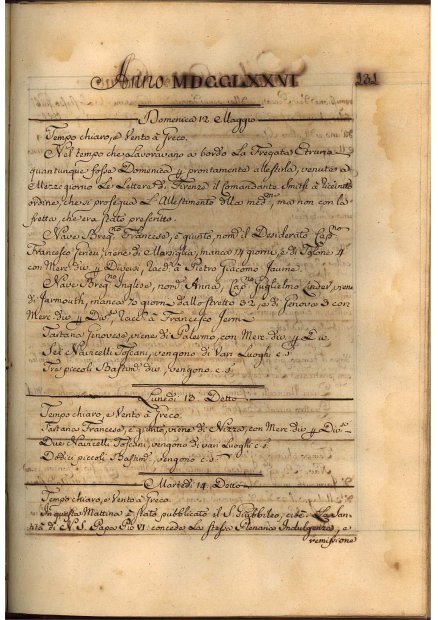 Anno MDCCLXXVI 131
Domenica 12 Maggio
Tempo chiaro, e Vento à Greco.
Nel tempo che Lavoravano a bordo La Fregata Etruria
quantunque fosse Domenica p prontamente allestirla, venuto a
Mezzo giorno Le Lettere di Firenze il Comandante à ricevuto
ordine, che si prosegua L'Allestimento della med:ma, ma non con la
fretta, che era stato prescritto.
Nave Francese, è giunto, nom:to il Desiderato Cap:no
Francesco viene di Marsiglia, manca 14 giorni, e di Tolone 4
con Merc: div: p Diversi, Racd: à Pietro Giacomo Jaume.
Nave Inglese, nom:to Anna, Cap:no Guglielmo viene
di Jarmouth, manca 70 giorni dallo stretto 32, e di Genova 3 con
Merc: div: p Div:si Racd: à Francesco
Tartana Genovese, viene di Palermo, con Merc: div: p Div:
Sei Navicelli Toscani, vengono di Vari Luoghi c.s.
Tre piccoli Bastim: div: vengono c.s.
Lunedì 13. Detto
Tempo chiaro, e Vento à Greco.
Tartana Francese, è giunto, viene di Nizza, con Merc: div: p Div:si
Due Navicelli Toscani, vengono di vari Luoghi c.s.
Dodici piccoli Bastim: vengono c.s.
Martedì 14. Detto
Tempo chiaro, e Vento à Greco.
In questa Mattina è stato pubblicato il S. Giubbileo, cioè La San-
tità di N. S. Papa Pio VI: concede La stessa Plenaria Indulgenza, e
remissione